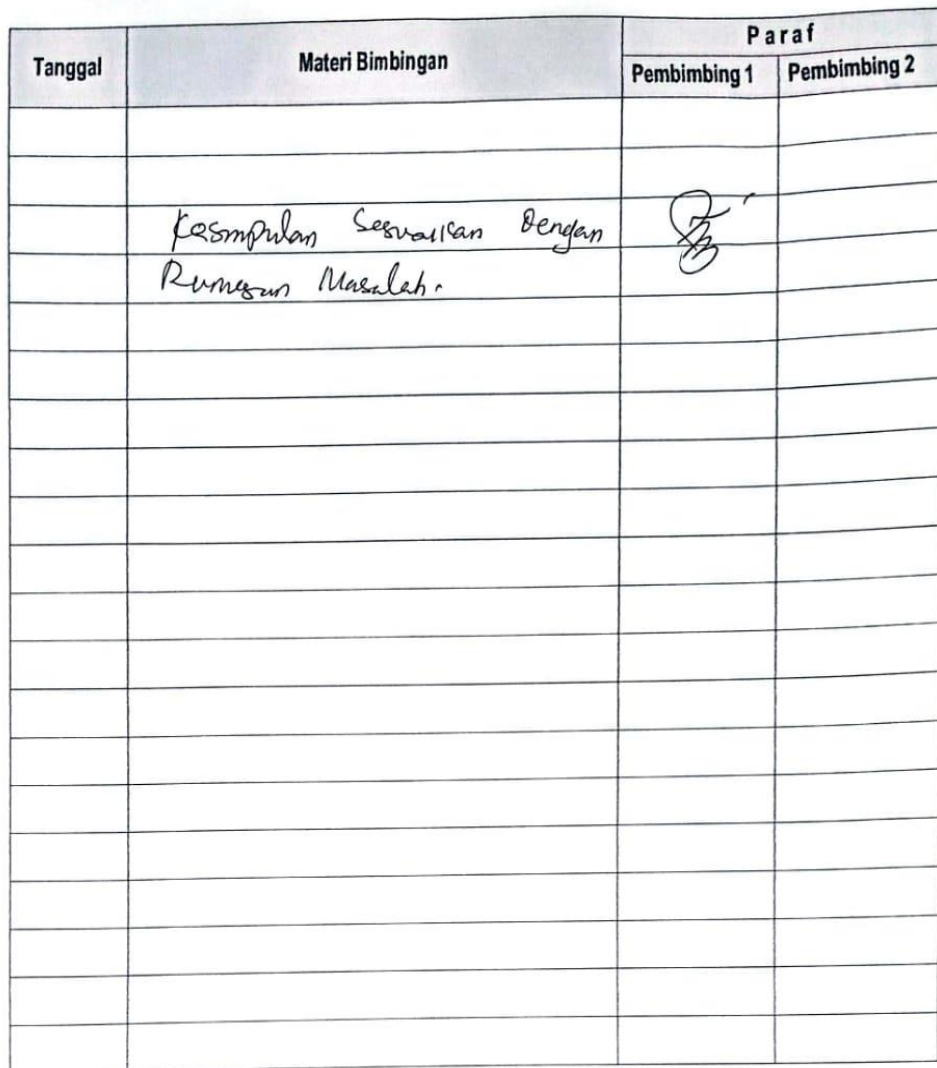 Paraf
Tanggal Materi Bimbingan Pembimbing 1 Pembimbing 2
Kesimpulan Sesuaikan Dengan
Rumusan Masalah.